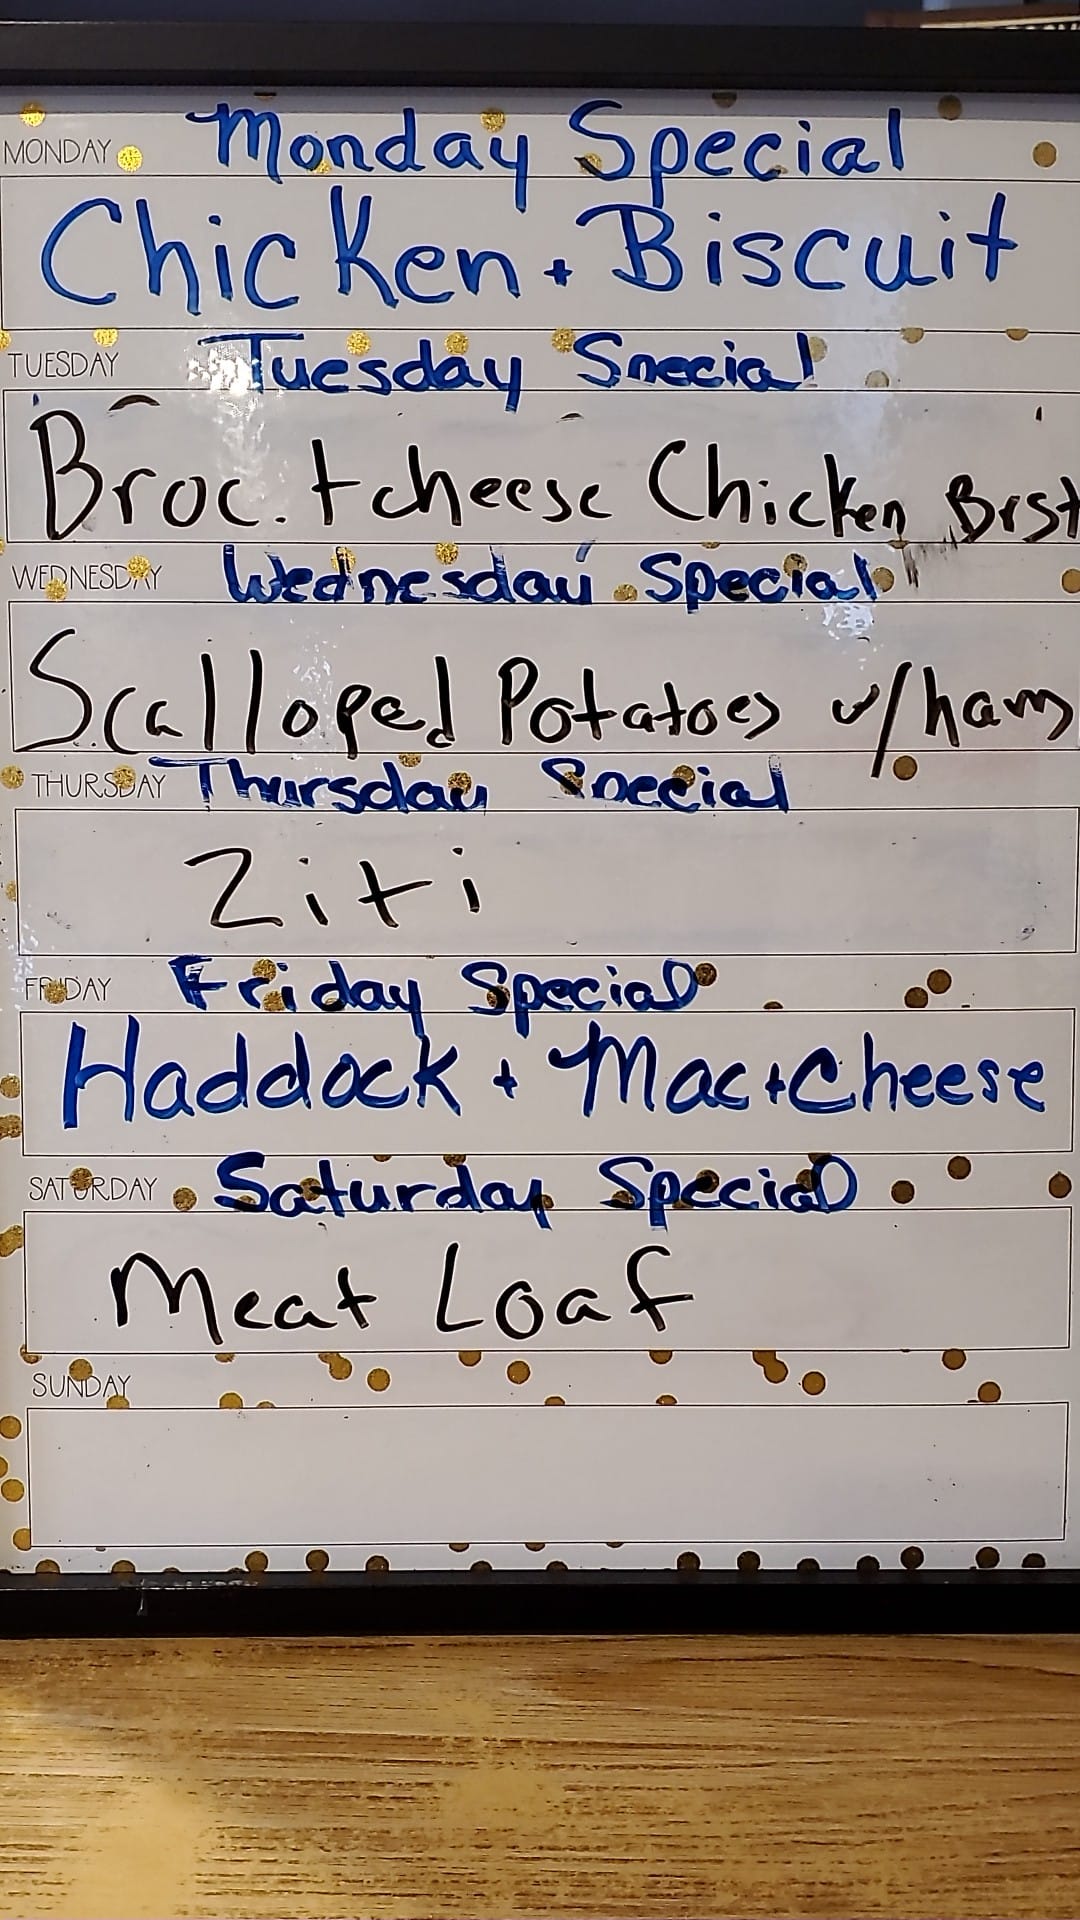 MONDAY Monday Special
Chicken + Biscuit
TUESDAY Tuesday Special
Broc. + cheese Chicken Brst
WEDNESDAY Wednesday Special
Scalloped Potatoes w/ham
THURSDAY Thursday Special
Ziti
FRIDAY Friday Special
Haddock + Mac+Cheese
SATURDAY Saturday Special
Meat Loaf
SUNDAY